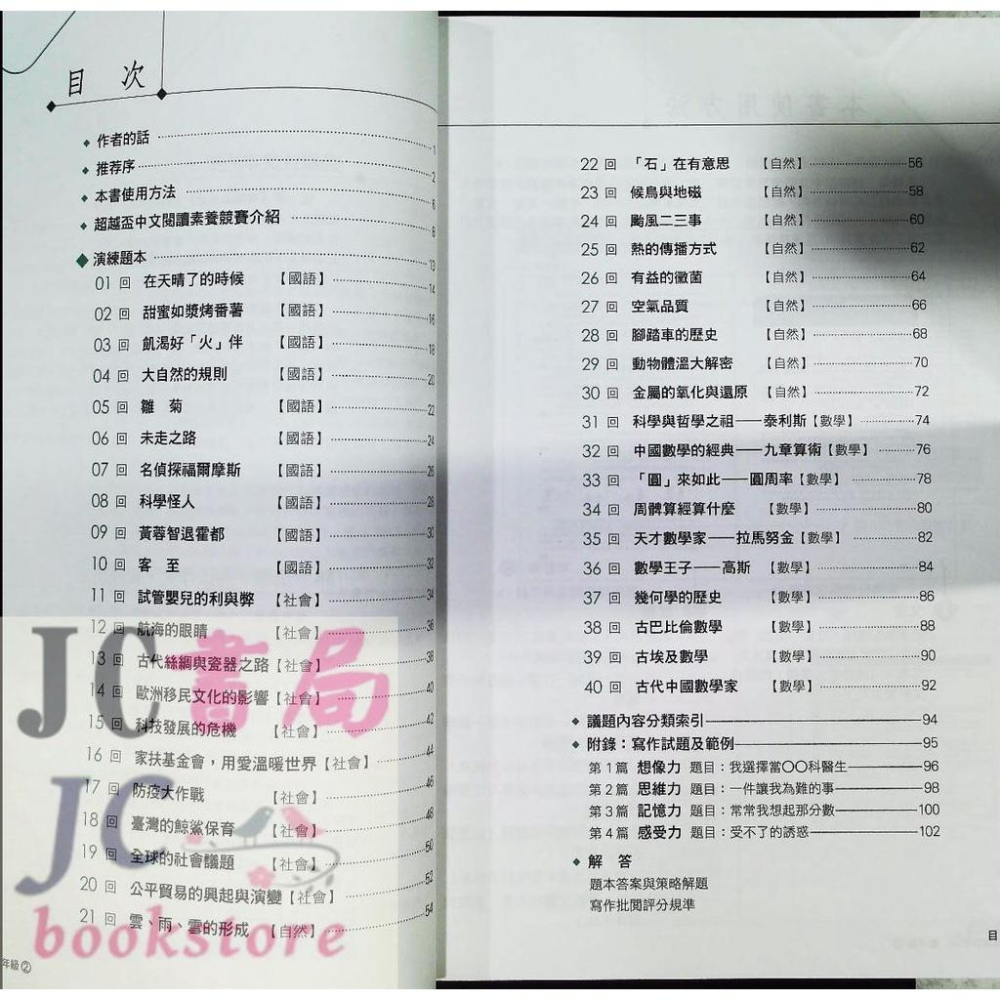 目 次
◆ 作者的話 1
◆ 推荐序 2
◆ 本書使用方法 6
◆ 超越盃中文閱讀素養競賽介紹 8
◆ 演練題本 13
01 回 在天晴了的時候 【國語】 14
02 回 甜蜜如漿烤番薯 【國語】 16
03 回 飢渴好「火」伴 【國語】 18
04 回 大自然的規則 【國語】 20
05 回 雛 菊 【國語】 22
06 回 未走之路 【國語】 24
07 回 名偵探福爾摩斯 【國語】 26
08 回 科學怪人 【國語】 28
09 回 黃蓉智退霍都 【國語】 30
10 回 客 至 【國語】 32
11 回 試管嬰兒的利與弊 【社會】 34
12 回 航海的眼睛 【社會】 36
13 回 古代絲綢與瓷器之路【社會】 38
14 回 歐洲移民文化的影響【社會】 40
15 回 科技發展的危機 【社會】 42
16 回 家扶基金會，用愛溫暖世界【社會】 44
17 回 防疫大作戰 【社會】 46
18 回 臺灣的鯨鯊保育 【社會】 48
19 回 全球的社會議題 【社會】 50
20 回 公平貿易的興起與演變【社會】 52
21 回 雲、雨、雪的形成 【自然】 54
年級②
22 回 「石」在有意思 【自然】 56
23 回 候鳥與地磁 【自然】 58
24 回 颱風二三事 【自然】 60
25 回 熱的傳播方式 【自然】 62
26 回 有益的黴菌 【自然】 64
27 回 空氣品質 【自然】 66
28 回 腳踏車的歷史 【自然】 68
29 回 動物體溫大解密 【自然】 70
30 回 金屬的氧化與還原 【自然】 72
31 回 科學與哲學之祖——泰利斯【數學】 74
32 回 中國數學的經典——九章算術【數學】 76
33 回 「圓」來如此——圓周率【數學】 78
34 回 周髀算經算什麼 【數學】 80
35 回 天才數學家——拉馬努金【數學】 82
36 回 數學王子——高斯 【數學】 84
37 回 幾何學的歷史 【數學】 86
38 回 古巴比倫數學 【數學】 88
39 回 古埃及數學 【數學】 90
40 回 古代中國數學家 【數學】 92
◆ 議題內容分類索引 94
◆ 附錄：寫作試題及範例 95
第 1 篇 想像力 題目：我選擇當〇〇科醫生 96
第 2 篇 思維力 題目：一件讓我為難的事 98
第 3 篇 記憶力 題目：常常我想起那分數 100
第 4 篇 感受力 題目：受不了的誘惑 102
◆ 解 答
題本答案與策略解題
寫作批閱評分規準
目
JC書局
JC
bookstore